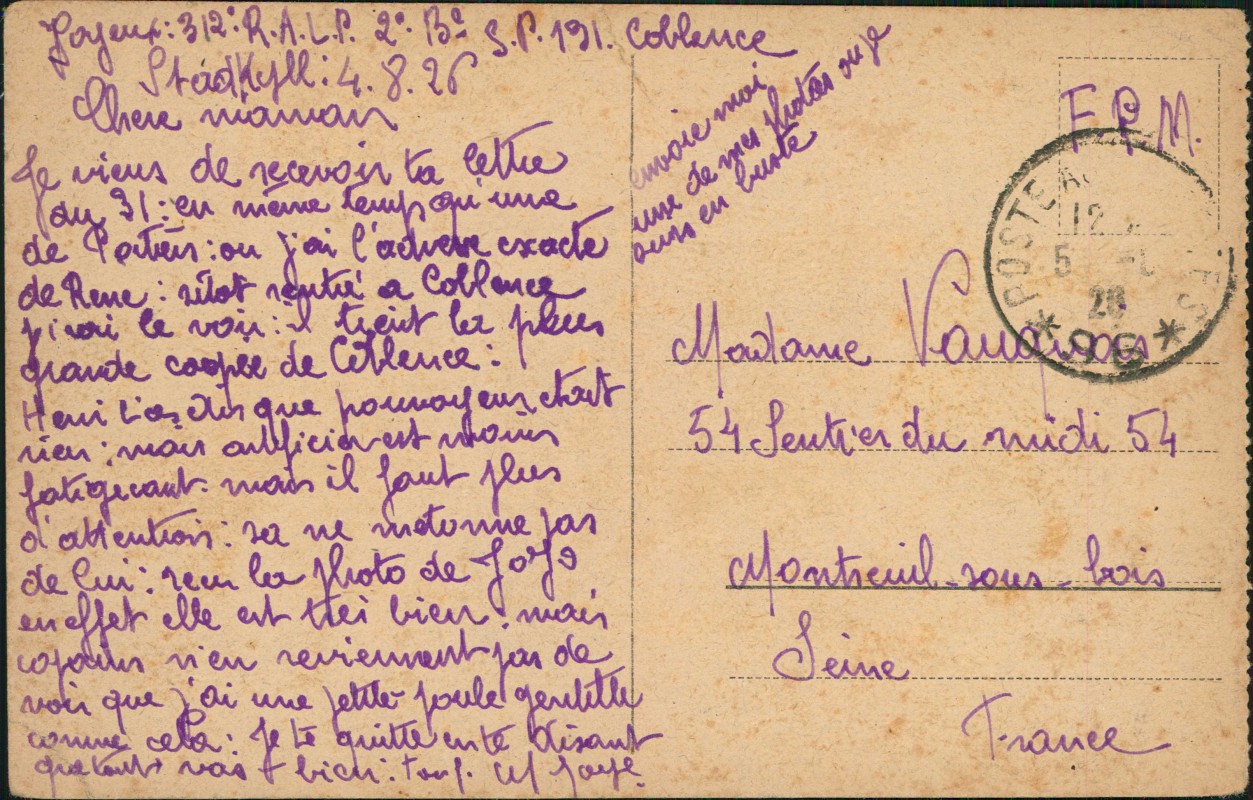 Joyeux : 312e R.A.L.P. 2e Bie S.P. 191. Coblence
Stadkyll : 4.8.26
Chere maman
Je viens de recevoir ta lettre
du 31 : en même temps qu'une
de : ou j'ai l'adresse exacte
de Rene : sitot rentré a Coblence
j'irai le voir : il tient la plus
grande coopée de Coblence :
Henri dis que pourvoyeur, etait
rien : mais artificier est moins
fatigeant. mais il faut plus
d'attention : sa ne metonne pas
de lui : recu la photo de JoJo
en effet elle est trei bien. mais
copains n'en reviennent pas de
voir que j'ai une petite poule gentille
comme cela : Je te quitte en te disant
que tout vas bien :
envoie moi
une de mes photos ou je
suis en buste
F.P.M.
POSTE A
12
5
26
* 96 *
Madame
54 Sentier du midi 54
Montreuil-sous-bois
Seine
France